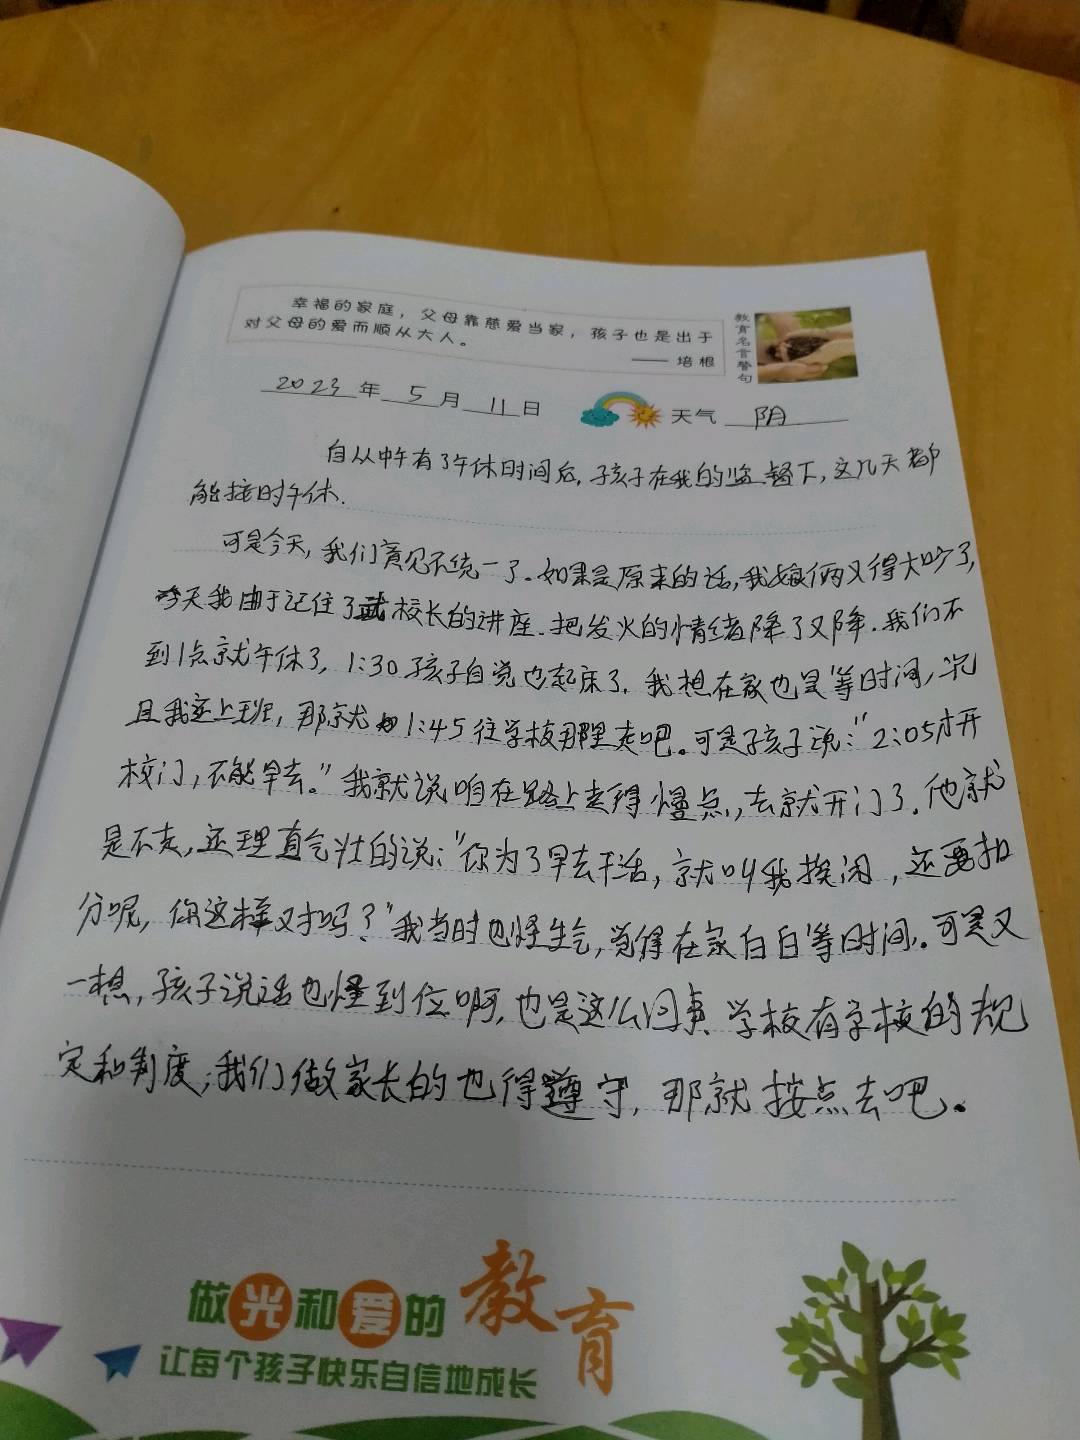 幸福的家庭，父母靠慈爱当家，孩子也是出于
对父母的爱而顺从大人。
—— 培根
教育名言警句
2023 年 5 月 11 日
天气 阴
自从中午有了午休时间后，孩子在我的监督下，这几天都
能按时午休.
可是今天，我们意见不统一了.如果是原来的话，我娘俩又得大吵了，
今天我由于记住了武校长的讲座.把发火的情绪降了又降.我们不
到1点就午休了，1:30孩子自觉也起床了.我想在家也是等时间，况
且我还上班，那就1:45往学校那里走吧。可是孩子说："2:05才开
校门，不能早去."我就说咱在路上走得慢点，去就开门了.他就
是不走，还理直气壮的说："你为了早去干活，就叫我挨闲，还要扣
分呢，你这样对吗？"我当时也怪生气，觉得在家白白等时间.可是又
一想，孩子说话也怪到位啊，也是这么回事、学校有学校的规
定和制度，我们做家长的也得遵守，那就按点去吧.
做光和爱的教育
让每个孩子快乐自信地成长